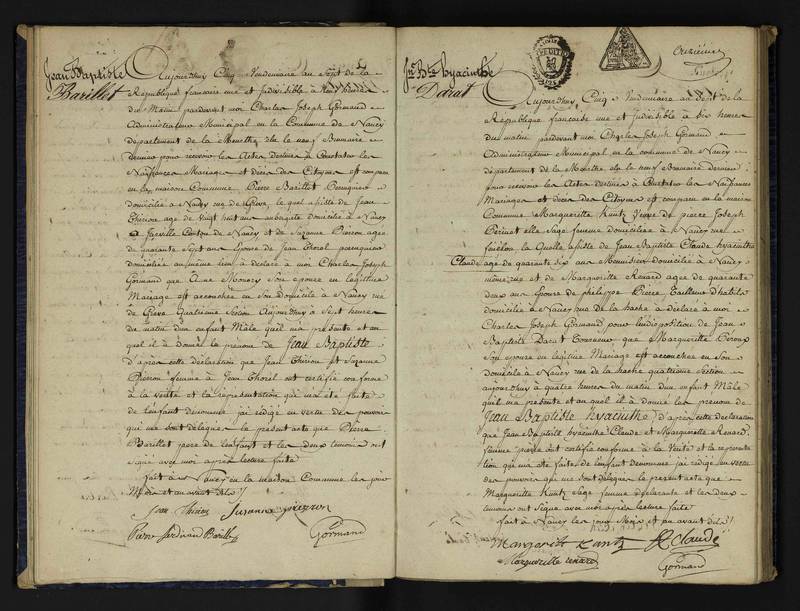 Jean Baptiste
Barillet
Aujourdhuy Cinq Vendemiaire an Sept de la
République francaise une et indivisible à neuf heures
du Matin pardevant moi Charles Joseph Gormand
Administrateur Municipal en la Commune de Nancy
département de la Meurthe élu le neuf Brumaire
dernier pour recevoir les Actes destinés à Constater les
Naissances Mariages et décès des Citoyens est comparu
en la maison Commune Pierre Barillet Perruquier
domicilié à Nancy rue de Grève, lequel assisté de Jean
Thirion agé de vingt huit ans domicilié à Nancy
Canton de Nancy et de Suzanne Pierron agée
de quarante Sept ans épouse de Jean Thorel perruquier
domiciliée au même lieu à déclaré à moi Charles Joseph
Gormand que Anne Monory Son épouse en légitime
Mariage est accouchée en Son domicile à Nancy rue
de Grève Quatrieme Section Aujourdhuy à Sept heures
du matin d'un enfant Mâle quil m'a présenté et au
quel il à donné le prénom de Jean Baptiste
d'après cette déclaration que Jean Thirion et Suzanne
Pierron femme à Jean Thorel ont certifié conforme
à la vérité et la représentation qui m'a été faite
de lenfant dénommé j'ai rédigé en vertu des pouvoirs
qui me sont délégués le présent acte que Pierre
Barillet pere de lenfant et les deux temoins ont
signé avec moi après lecture faite
fait à Nancy en la maison Commune les jour
Mois et an avant dits
Jean Thirion Suzanne pierron
Pierre Barillet Gormand
Jn. Bte hyacinthe
Darat
Onzieme
Aujourdhuy Cinq Vendemiaire an Sept de la
République francaise une et indivisible à dix heures
du matin pardevant moi Charles Joseph Gormand
Administrateur Municipal en la commune de Nancy
département de la Meurthe élu le neuf Brumaire Dernier
pour recevoir les Actes destinés à Constater les Naissances
Mariages et décès des Citoyens est comparu en la maison
Commune Marguerite Kuntz Veuve de pierre Joseph
Perinet elle Sage femme domiciliée à Nancy rue
la Quelle assistée de Jean Baptiste Claude hyacinthe
Claude agé de quarante Six ans Menuisier domicilié à Nancy
même rue et de Marguerite Renard agée de quarante
deux ans Epouse de philippe Pierre Tailleur d'habits
domicilié à Nancy rue de la hache à déclaré à moi
Charles Joseph Gormand pour lindisposition de Jean
Baptiste Darat Tourneur que Marguerite
Son épouse en légitime Mariage est accouchée en Son
domicile à Nancy rue de la hache quatrieme Section
aujourdhuy à quatre heures du matin d'un enfant Mâle
quil m'a présenté et au quel il à donné les prenoms de
Jean Baptiste hyacinthe d'après cette déclaration
que Jean Baptiste hyacinthe Claude et Marguerite Renard
femme pierre ont certifié conforme à la Vérité et la représenta
tion qui m'a été faite de lenfant dénommé j'ai rédigé en vertu
des pouvoirs qui me sont délégués le présent acte que
Marguerite Kuntz Sage femme déclarante et les deux
temoins ont signé avec moi après lecture faite
fait à Nancy les jour Mois et an avant dits
Margarith Kuntz Claude
Marguerite renard Gormand